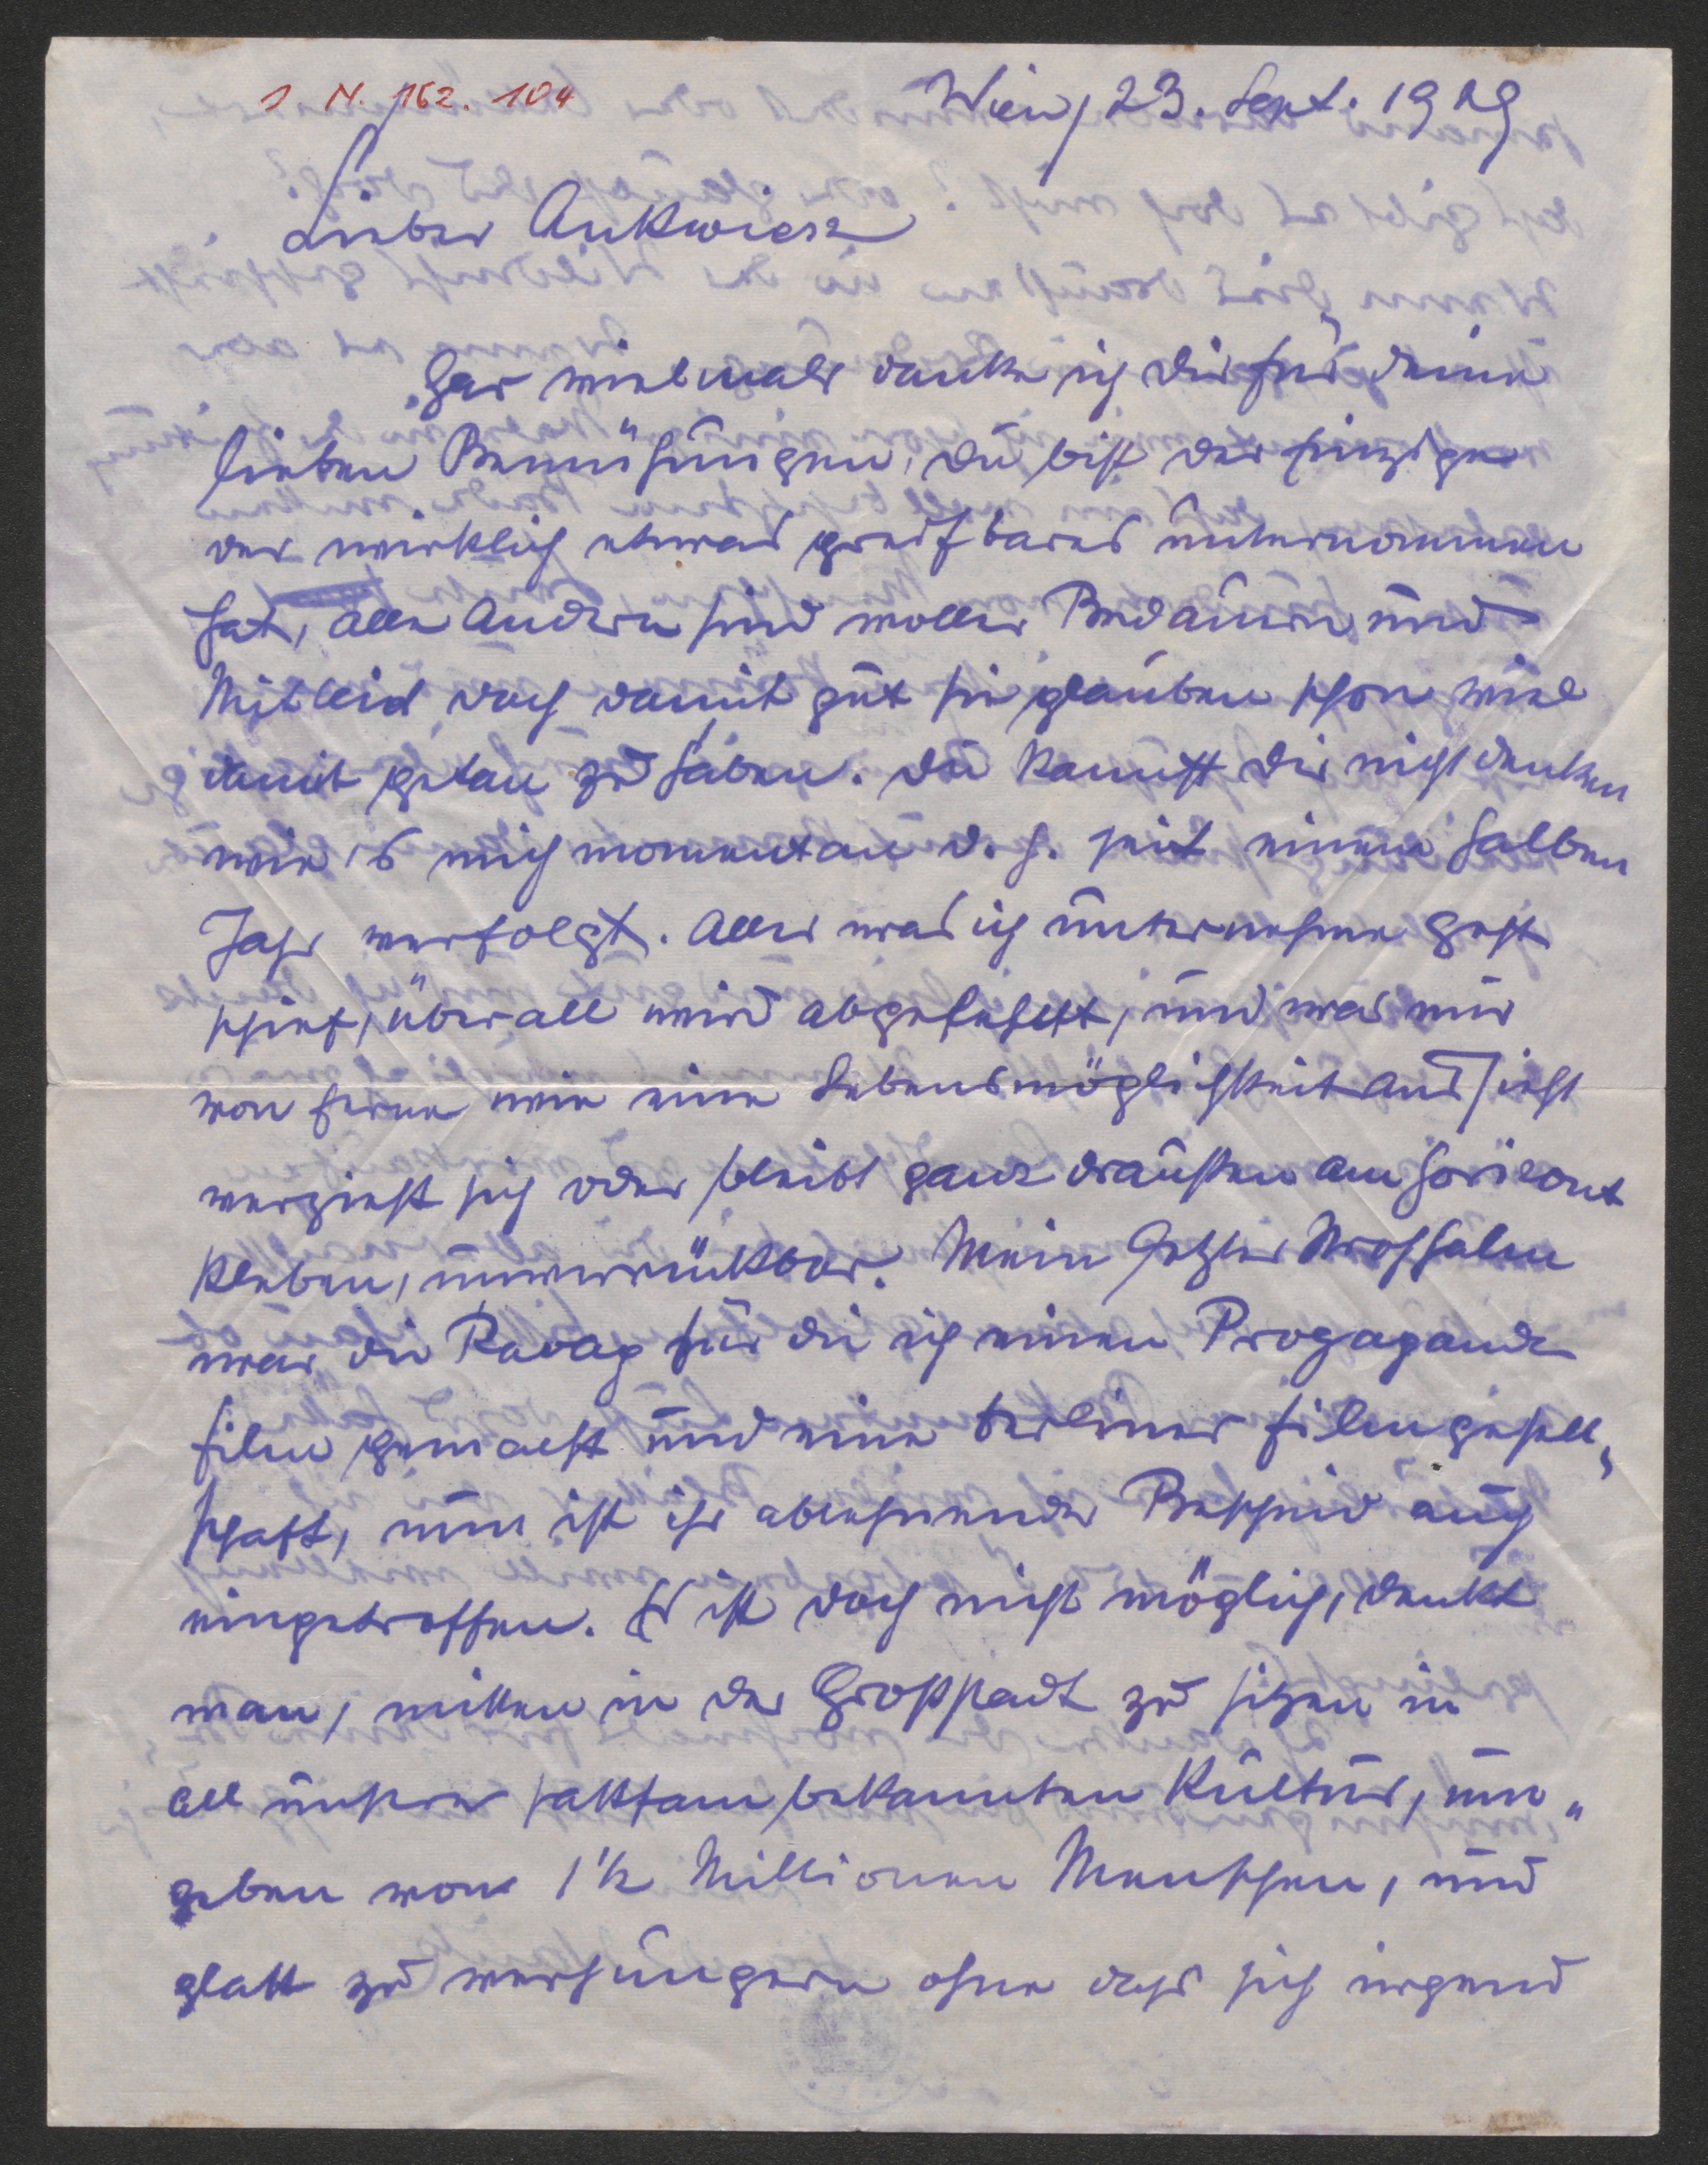 I. N. 162. 104
Wien, 23. Sept. 1929
Lieber Ankwicz
Gar vielmals danke ich dir für deine
lieben Bemühungen, du bist der einzige
der wirklich etwas greifbares unternommen
hat, alle Andern sind voller Bedauern und
Mitleid doch damit gut sie glauben schon viel
damit getan zu haben. Du kannst dir nicht denken
wie 's mich momentan d. h. seit einem halben
Jahr verfolgt. Alles was ich unternehme geht
schief, überall wird abgelehnt, und was mir
von ferne wie eine Lebensmöglichkeit aussieht
verzieht sich oder bleibt ganz draußen am Horizont
kleben, unverrückbar. Mein letzter Strohhalm
war die Ravag für die ich einen Progaganda
film gemacht und eine berliner Filmgesell-
schaft, nun ist ihr ablehnender Bescheid auch
eingetroffen. Es ist doch nicht möglich, denkt
man, mitten in der Großstadt zu sizen in
all unserer sattsam bekannten Kultur, um-
geben von 1½ Millionen Menschen, und
glatt zu verhungern ohne dass sich irgend